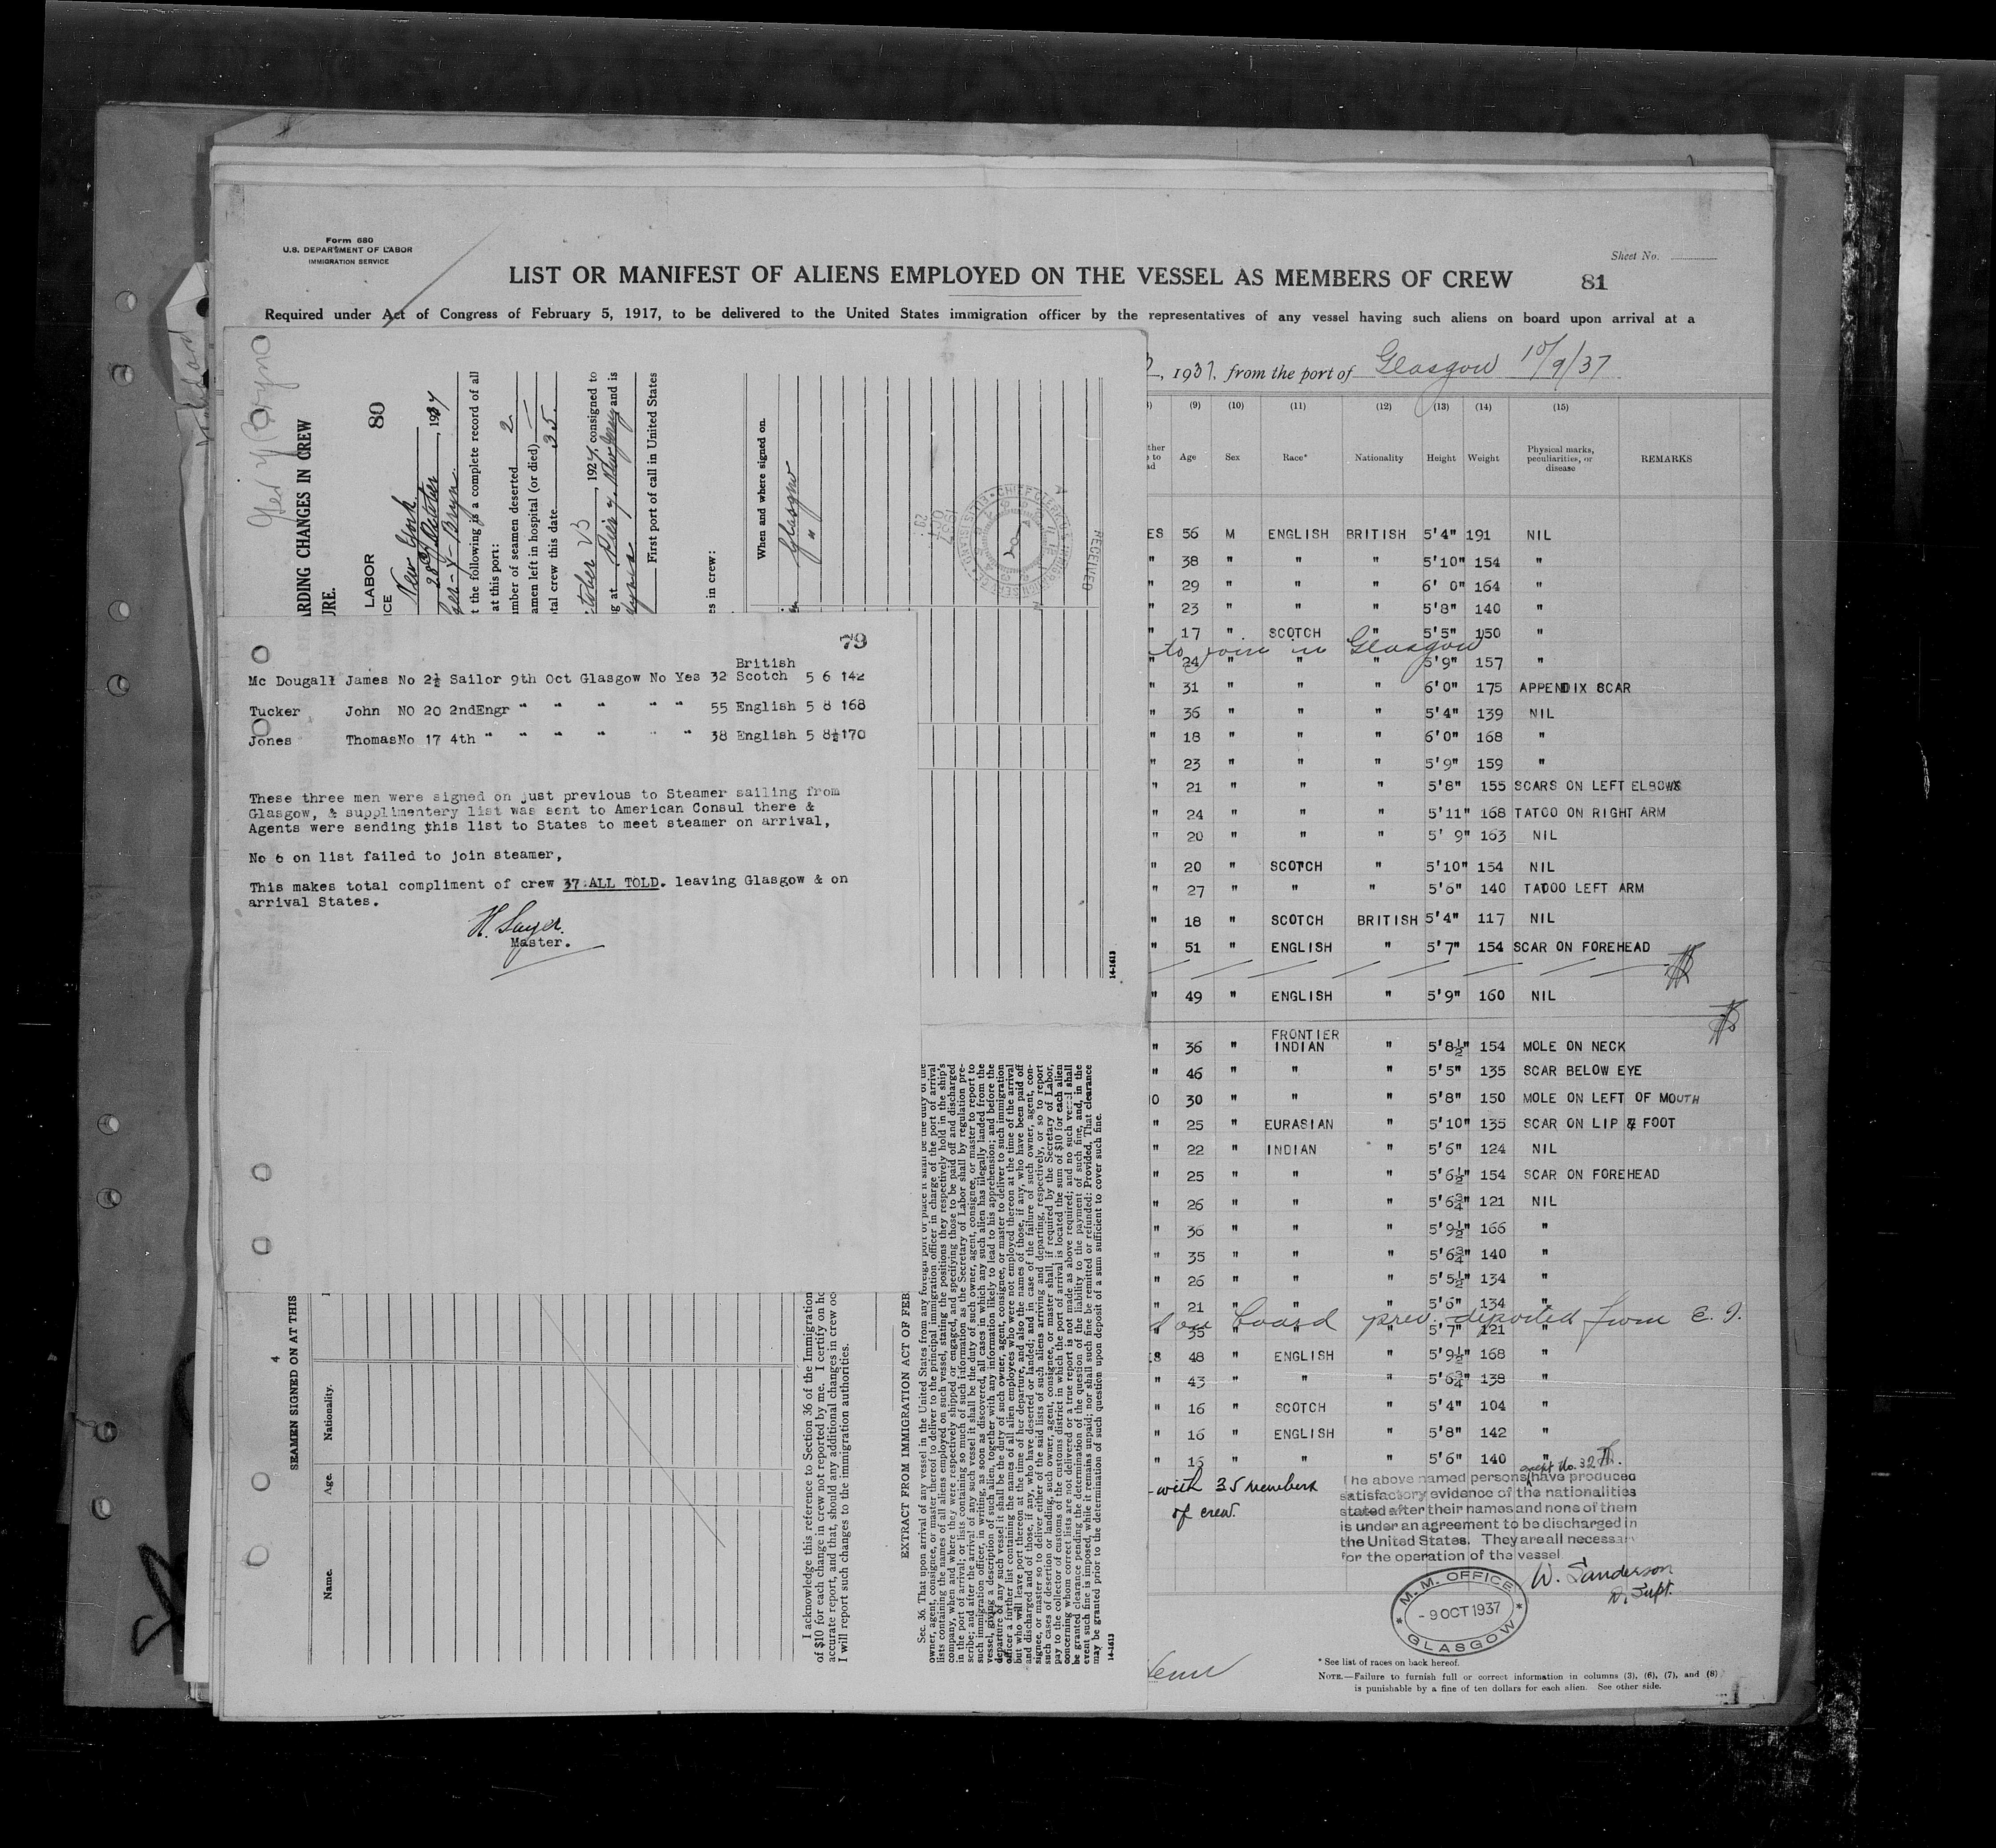 Form 680
U.S. DEPARTMENT OF LABOR
IMMIGRATION SERVICE
Sheet No.
LIST OR MANIFEST OF ALIENS EMPLOYED ON THE VESSEL AS MEMBERS OF CREW
81
Required under Act of Congress of February 5, 1917, to be delivered to the United States immigration officer by the representatives of any vessel having such aliens on board upon arrival at a
, 1937, from the port of Glasgow 10/9/37
(9) (10) (11) (12) (13) (14) (15)
Age Sex Race* Nationality Height Weight Physical marks, peculiarities, or disease REMARKS
ES 56 M ENGLISH BRITISH 5'4" 191 NIL
" 38 " " " 5'10" 154 "
" 29 " " " 6' 0" 164 "
" 23 " " " 5'8" 140 "
" 17 " SCOTCH " 5'5" 150 "
to join in Glasgow
" 24 " " " 5'9" 157 "
" 31 " " " 6'0" 175 APPENDIX SCAR
" 36 " " " 5'4" 139 NIL
" 18 " " " 6'0" 168 "
" 23 " " " 5'9" 159 "
" 21 " " " 5'8" 155 SCARS ON LEFT ELBOW
" 24 " " " 5'11" 168 TATOO ON RIGHT ARM
" 20 " " " 5' 9" 163 NIL
" 20 " SCOTCH " 5'10" 154 NIL
" 27 " " " 5'6" 140 TATOO LEFT ARM
" 18 " SCOTCH BRITISH 5'4" 117 NIL
" 51 " ENGLISH " 5'7" 154 SCAR ON FOREHEAD
" 49 " ENGLISH " 5'9" 160 NIL
" 36 " FRONTIER INDIAN " 5'8½" 154 MOLE ON NECK
" 46 " " " 5'5" 135 SCAR BELOW EYE
O 30 " " " 5'8" 150 MOLE ON LEFT OF MOUTH
" 25 " EURASIAN " 5'10" 135 SCAR ON LIP & FOOT
" 22 " INDIAN " 5'6" 124 NIL
" 25 " " " 5'6½" 154 SCAR ON FOREHEAD
" 26 " " " 5'6¾" 121 NIL
" 36 " " " 5'9½" 166 "
" 35 " " " 5'6¾" 140 "
" 26 " " " 5'5½" 134 "
" 21 " " " 5'6" 134 "
on board prev. deported from E. I.
" 35 " " " 5'7" 121 "
ES 48 " ENGLISH " 5'9½" 168 "
" 43 " " " 5'6¾" 138 "
" 16 " SCOTCH " 5'4" 104 "
" 16 " ENGLISH " 5'8" 142 "
" 16 " " " 5'6" 140 "
with 35 members
of crew.
except No. 32
The above named persons have produced
satisfactory evidence of the nationalities
stated after their names and none of them
is under an agreement to be discharged in
the United States. They are all necessary
for the operation of the vessel
W. Sanderson
D. Supt.
M. M. OFFICE
- 9 OCT 1937
GLASGOW
* See list of races on back hereof.
NOTE.—Failure to furnish full or correct information in columns (3), (6), (7), and (8)
is punishable by a fine of ten dollars for each alien. See other side.
79
Mc Dougall James No 2½ Sailor 9th Oct Glasgow No Yes 32 British Scotch 5 6 142
Tucker John NO 20 2ndEngr " " " " " 55 English 5 8 168
Jones ThomasNo 17 4th " " " " " " 38 English 5 8½170
These three men were signed on just previous to Steamer sailing from
Glasgow, & supplimentery list was sent to American Consul there &
Agents were sending this list to States to meet steamer on arrival,
No 6 on list failed to join steamer,
This makes total compliment of crew 37 ALL TOLD. leaving Glasgow & on
arrival States.
H. Sayer.
Master.
ARDING CHANGES IN CREW
URE.
80
LABOR
ICE
New York
28 October, 1937
t the following is a complete record of all
at this port:
mber of seamen deserted 2
amen left in hospital (or died)
tal crew this date 35.
, 1927, consigned to
g at Pier 7, New Jersey and is
First port of call in United States
es in crew:
When and where signed on.
Glasgow
"
RECEIVED
14-1613
4
SEAMEN SIGNED ON AT THIS
Name. Age. Nationality.
I acknowledge this reference to Section 36 of the Immigration
of $10 for each change in crew not reported by me. I certify on
accurate report, and that, should any additional changes in crew
I will report such changes to the immigration authorities.
EXTRACT FROM IMMIGRATION ACT OF FEB.
Sec. 36. That upon arrival of any vessel in the United States from any foreign port or place it shall be the duty of the
owner, agent, consignee, or master thereof to deliver to the principal immigration officer in charge of the port of arrival
lists containing the names of all aliens employed on such vessel, stating the positions they respectively hold in the ship's
company, when and where they were respectively shipped or engaged, and specifying those to be paid off and discharged
in the port of arrival; or lists containing so much of such information as the Secretary of Labor shall by regulation pre-
scribe; and after the arrival of any such vessel it shall be the duty of such owner, agent, consignee, or master to report to
such immigration officer, in writing, as soon as discovered, all cases in which any such alien has illegally landed from the
vessel, giving a description of such alien, together with any information likely to lead to his apprehension; and before the
departure of any such vessel it shall be the duty of such owner, agent, consignee, or master to deliver to such immigration
officer a further list containing the names of all alien employees who were not employed thereon at the time of the arrival
but who will leave port thereon at the time of her departure, and also the names of those, if any, who have been paid off
and discharged and of those, if any, who have deserted or landed; and in case of the failure of such owner, agent, con-
signee, or master so to deliver either of the said lists of such aliens arriving and departing, respectively, or so to report
such cases of desertion or landing, such owner, agent, consignee, or master shall, if required by the Secretary of Labor,
pay to the collector of customs of the customs district in which the port of arrival is located the sum of $10 for each alien
concerning whom correct lists are not delivered or a true report is not made as above required; and no such vessel shall
be granted clearance pending the determination of the question of the liability to the payment of such fine, and, in the
event such fine is imposed, while it remains unpaid; nor shall such fine be remitted or refunded: Provided, That clearance
may be granted prior to the determination of such question upon deposit of a sum sufficient to cover such fine.
14-1613